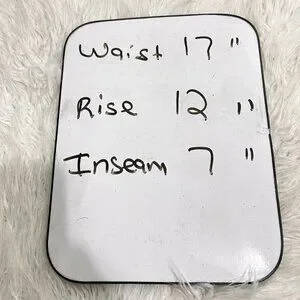 Waist 17"
Rise 12"
Inseam 7"